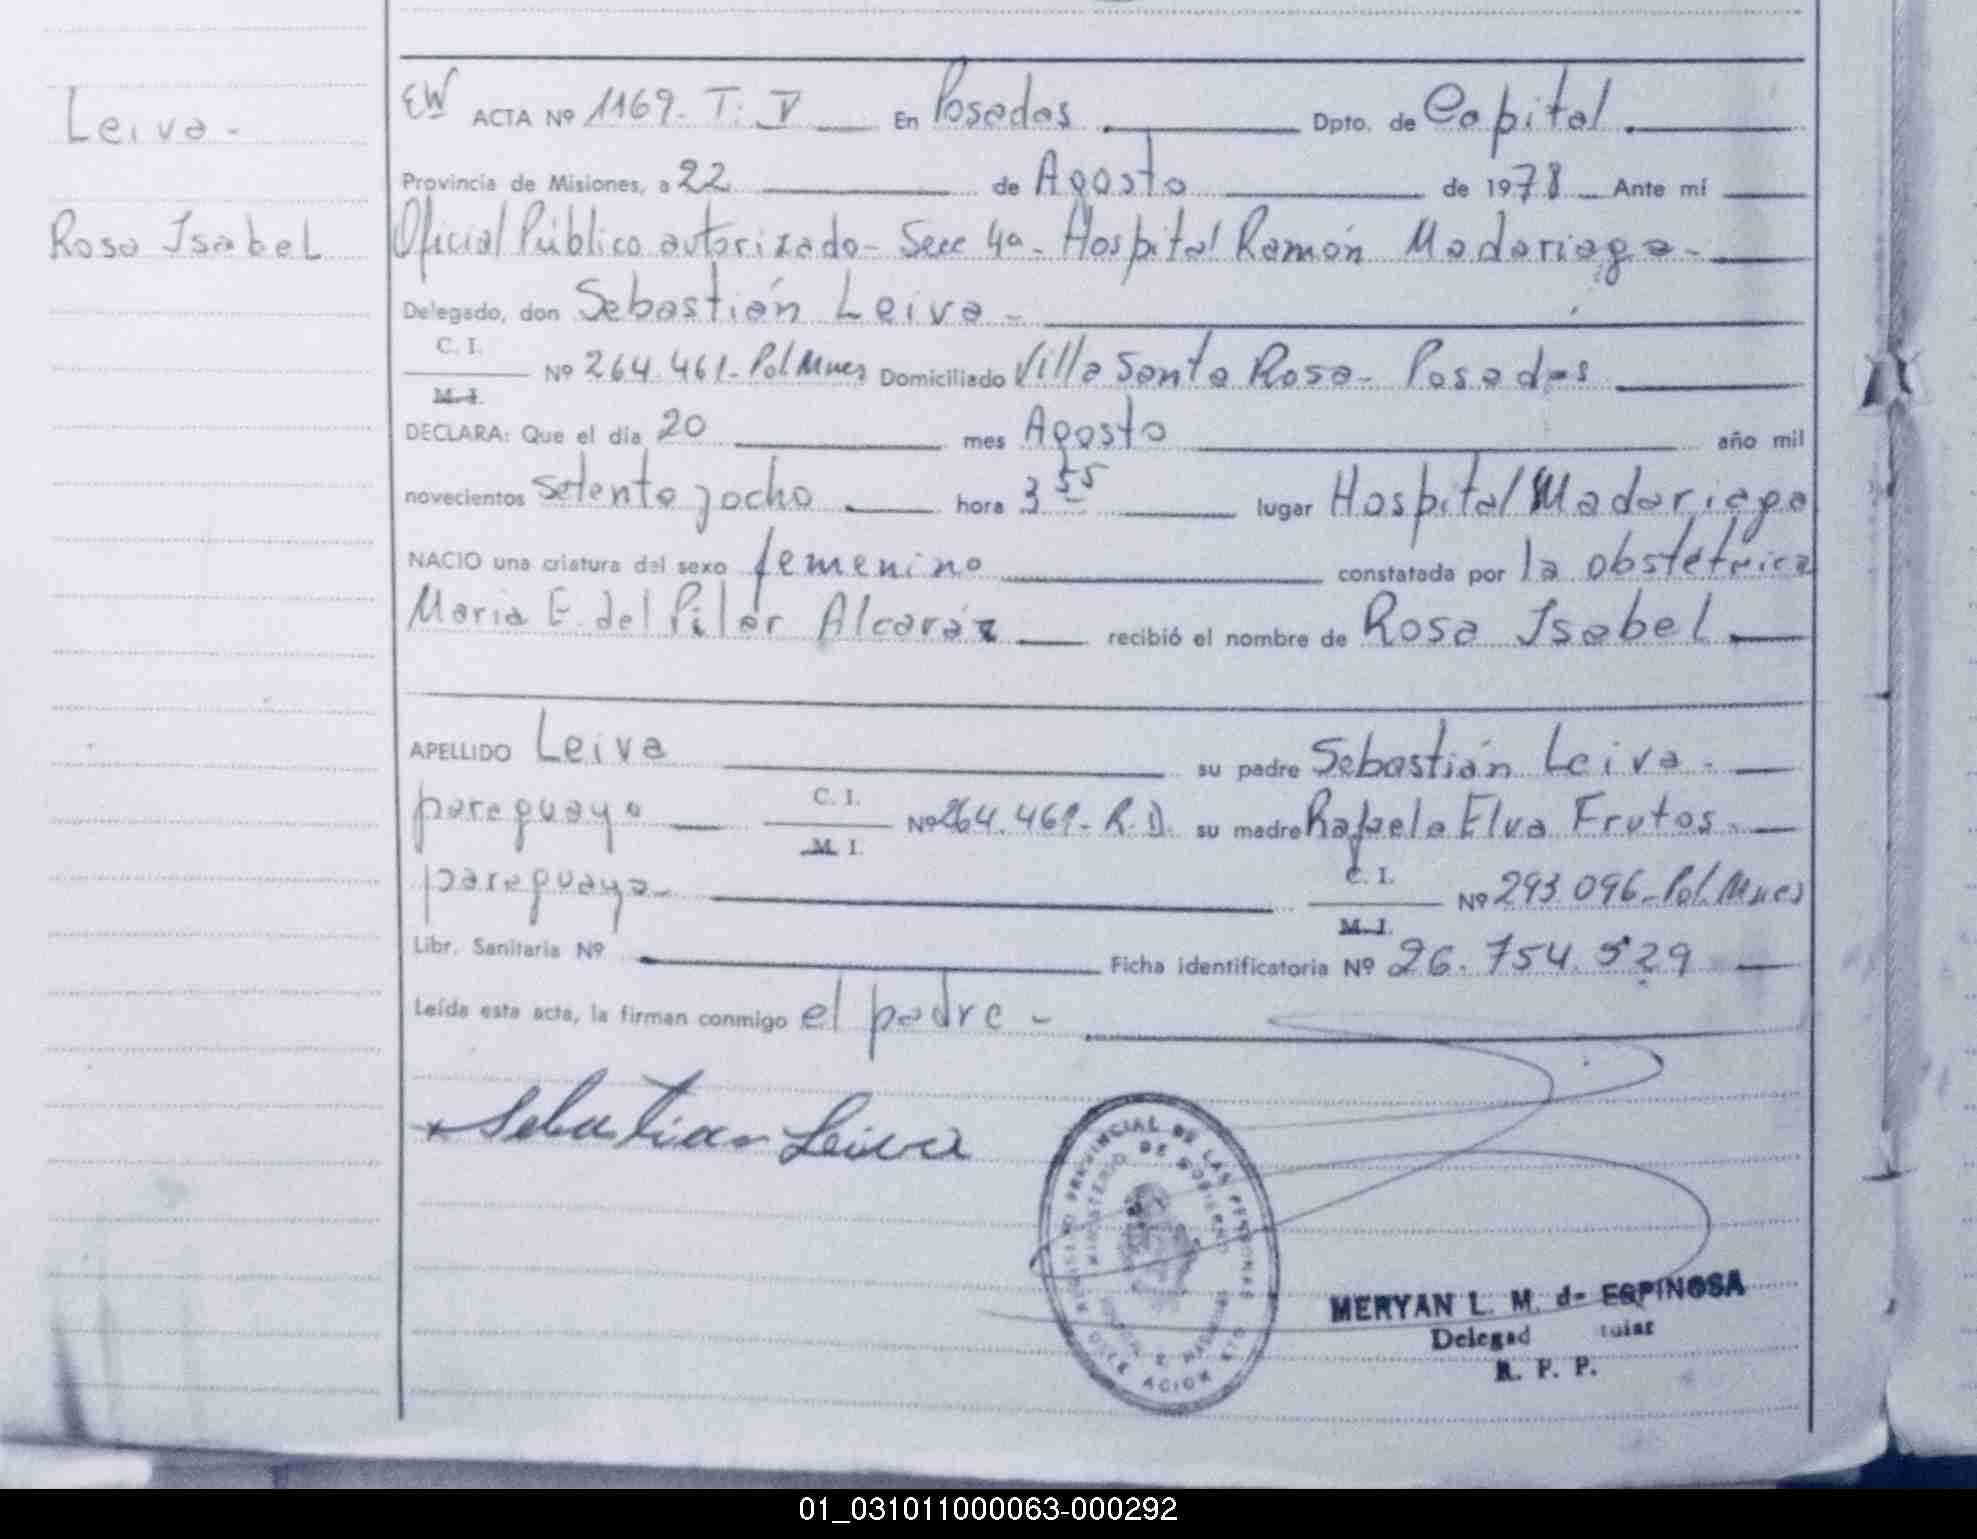 Leiva -
Rosa Isabel
EW ACTA Nº 1169 - T. V En Posadas Dpto. de Capital
Provincia de Misiones, a 22 de Agosto de 1978 Ante mí
Oficial Público autorizado - Secc 4ª - Hospital Ramón Madariaga -
Delegado, don Sebastián Leiva -
C. I.
Nº 264.461 - Pol Mnes Domiciliado Villa Santa Rosa - Posadas
M. I.
DECLARA: Que el día 20 mes Agosto año mil
novecientos setenta y ocho hora 3 55 lugar Hospital Madariaga
NACIO una criatura del sexo femenino constatada por la obstétrica
María E. del Pilar Alcaráz recibió el nombre de Rosa Isabel
APELLIDO Leiva su padre Sebastián Leiva -
C. I.
paraguayo Nº 264.461 - R.D. su madre Rafaela Elva Frutos -
M. I.
C. I.
paraguaya - Nº 293.096 - Pol. Mnes
M. I.
Libr. Sanitaria Nº Ficha identificatoria Nº 26.754.529
Leída esta acta, la firman conmigo el padre -
Sebastian Leiva
PROVINCIAL DE LAS PERSONAS
MINISTERIO DE GOBIERNO
MERYAN L. M. de ESPINOSA
R. P. P.
01_031011000063-000292